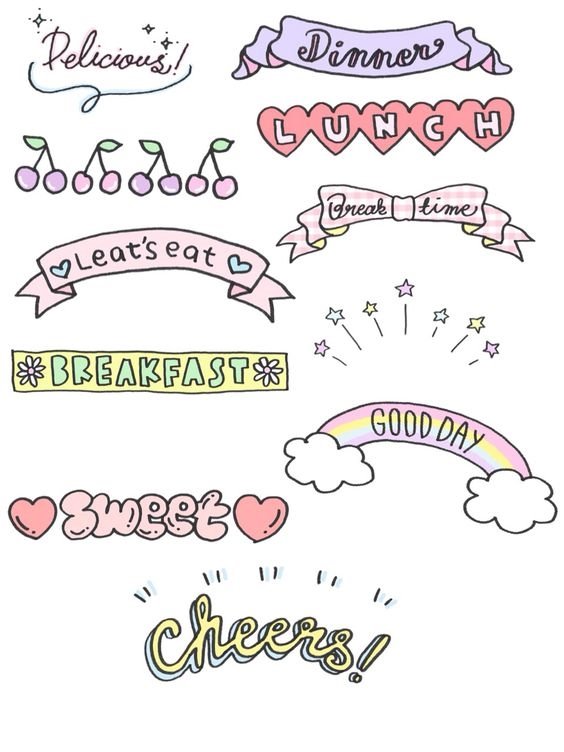 Delicious!
Dinner
LUNCH
Break time
Leat's eat
BREAKFAST
GOOD DAY
Sweet
Cheers!